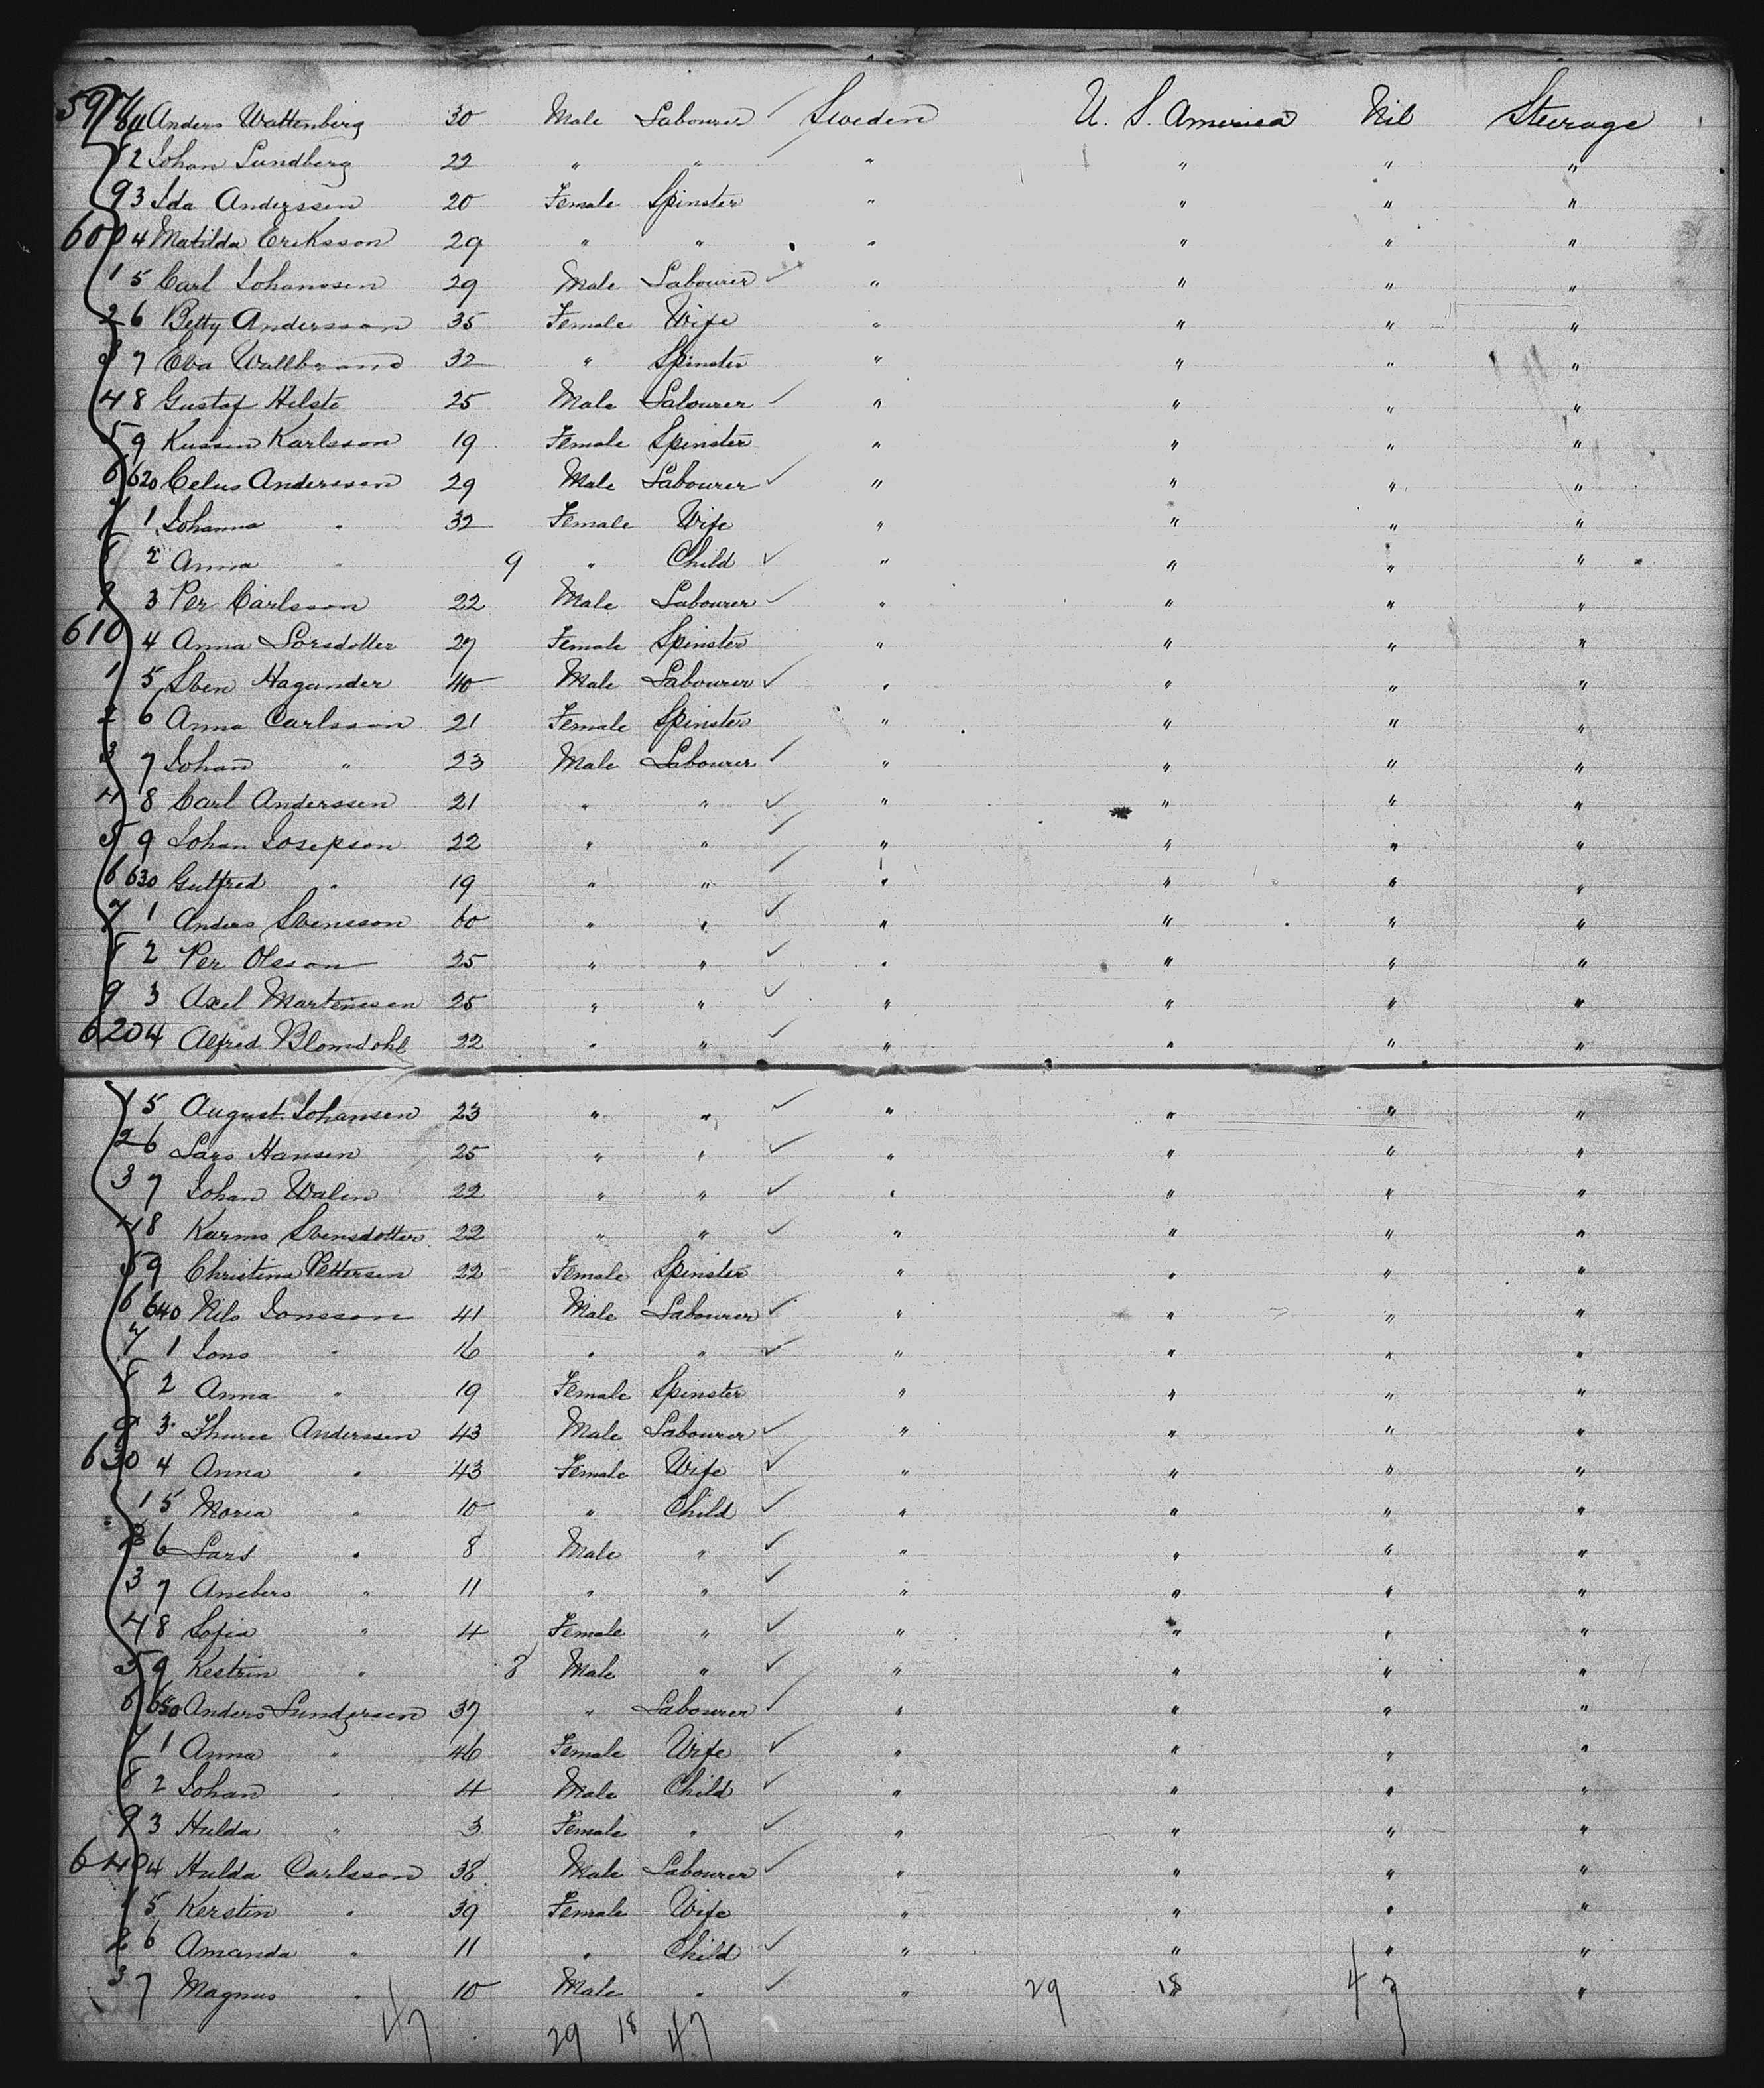 597 611 Anders Wattenberg 30 Male Labourer ✓ Sweden U. S. America Nil Steerage
8 2 Johan Lundberg 22 " " ✓ " " " "
9 3 Ida Anderssen 20 Female Spinster " " " "
600 4 Matilda Eriksson 29 " " " " " "
1 5 Carl Johanssen 29 Male Labourer ✓ " " " "
2 6 Betty Andersson 35 Female Wife " " " "
3 7 Eva 32 " Spinster " " " "
4 8 Gustaf Helste 25 Male Labourer ✓ " " " "
5 9 Karlsson 19 Female Spinster " " " "
6 620 Celus Anderssen 29 Male Labourer ✓ " " " "
7 1 Johanna " 32 Female Wife " " " "
8 2 Anna " 9 " Child ✓ " " " "
9 3 Per Carlsson 22 Male Labourer ✓ " " " "
610 4 Anna Larsdotter 27 Female Spinster " " " "
1 5 Sven Hagander 40 Male Labourer ✓ " " " "
2 6 Anna Carlsson 21 Female Spinster " " " "
3 7 Johan " 23 Male Labourer ✓ " " " "
4 8 Carl Anderssen 21 " " ✓ " " " "
5 9 Johan Josepson 22 " " ✓ " " " "
6 630 Gutfred " 19 " " ✓ " " " "
7 1 Anders Svensson 60 " " ✓ " " " "
8 2 Per Olsson 25 " " ✓ " " " "
9 3 Axel Martenssen 25 " " ✓ " " " "
620 4 Alfred Blomdohl 22 " " ✓ " " " "
1 5 August Johansen 23 " " ✓ " " " "
2 6 Lars Hansen 25 " " ✓ " " " "
3 7 Johan Walin 22 " " ✓ " " " "
4 8 Karms Svensdotter 22 " " ✓ " " " "
5 9 Christina Pettersen 22 Female Spinster " " " "
6 640 Nils Jonsson 41 Male Labourer ✓ " " " "
7 1 Jons " 16 " " ✓ " " " "
8 2 Anna " 19 Female Spinster " " " "
9 3 Thuree Anderssen 43 Male Labourer ✓ " " " "
630 4 Anna " 43 Female Wife ✓ " " " "
1 5 Moria " 10 " Child ✓ " " " "
2 6 Lars " 8 Male " ✓ " " " "
3 7 " 11 " " ✓ " " " "
4 8 Sofia " 4 Female " ✓ " " " "
5 9 Kestrin " 8 Male " ✓ " " " "
6 650 Anders Lundgreen 37 " Labourer ✓ " " " "
7 1 Anna " 46 Female Wife ✓ " " " "
8 2 Johan " 4 Male Child ✓ " " " "
9 3 Hulda " 3 Female " ✓ " " " "
640 4 Hulda Carlsson 38 Male Labourer ✓ " " " "
1 5 Kerstin " 39 Female Wife " " " "
2 6 Amanda " 11 " Child ✓ " " " "
3 7 Magnus " 10 Male " ✓ " 29 18 47 "
47 29 18 47